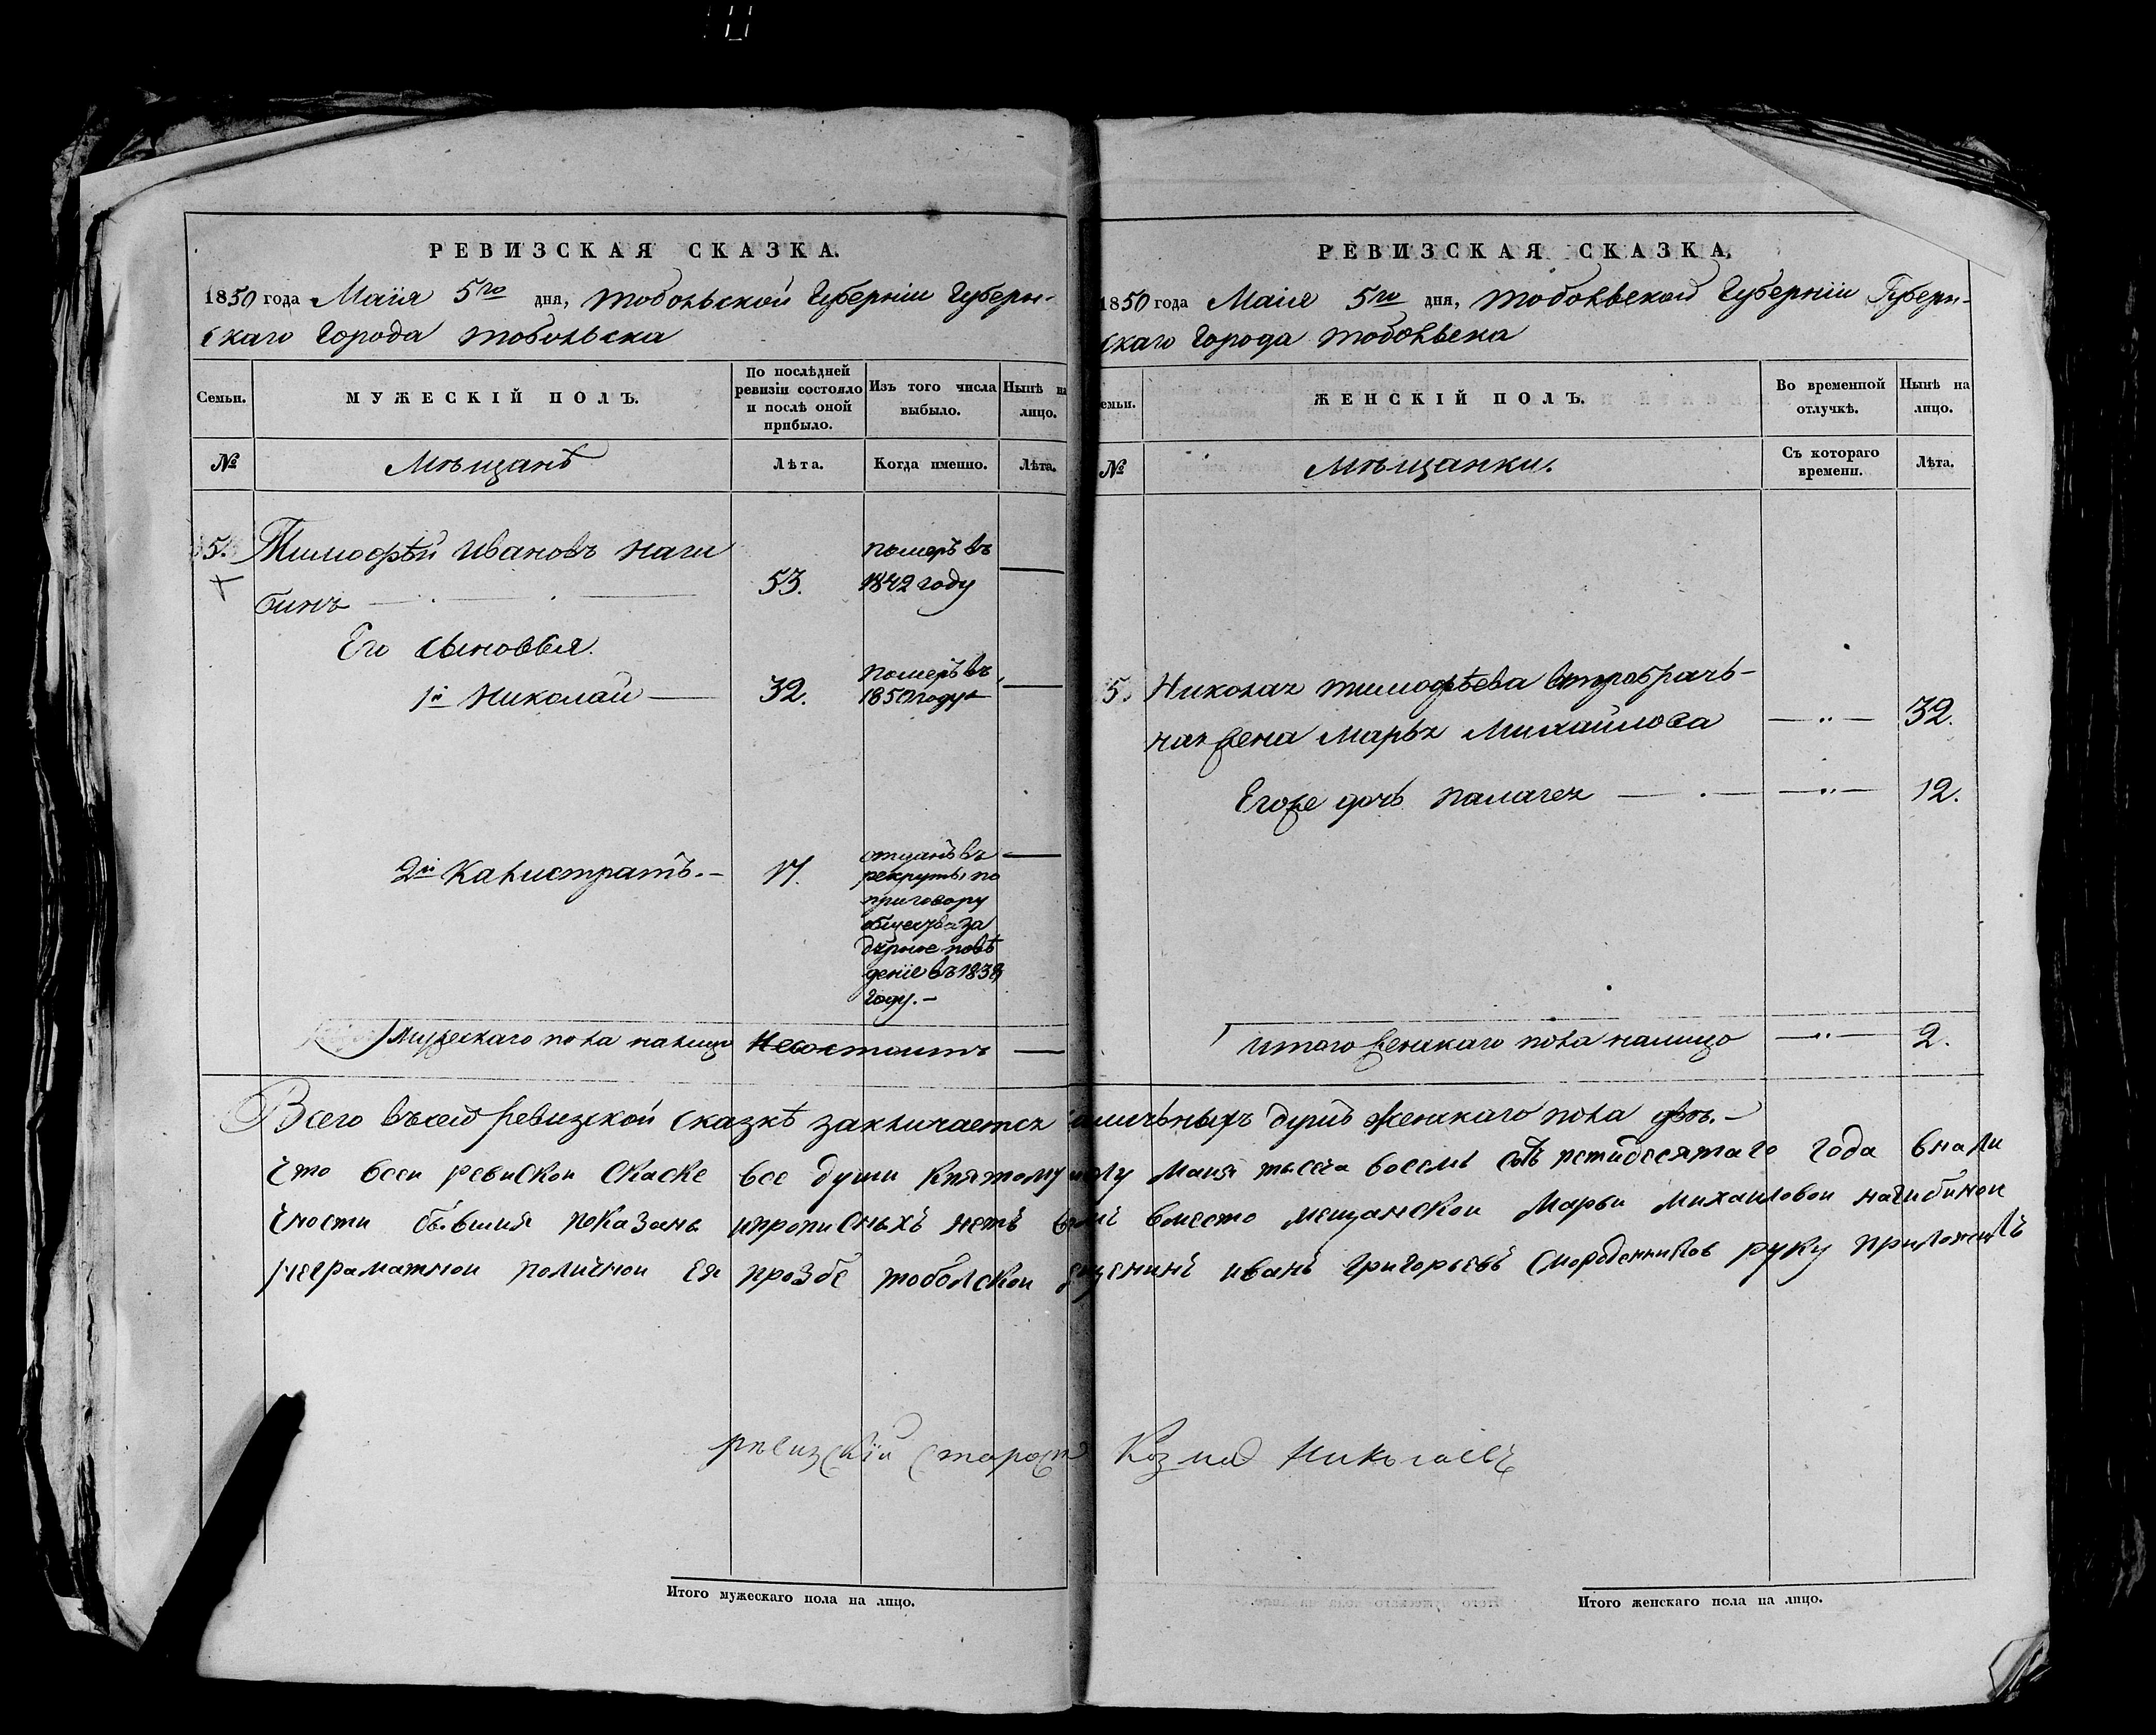 РЕВИЗСКАЯ СКАЗКА.
1850 года Маія 5го дня, Тобольской Губерніи Губерн-
скаго Города Тобольска
Семьи.
МУЖЕСКІЙ ПОЛЪ.
По послѣдней
ревизіи состояло
и послѣ оной
прибыло.
Изъ того числа
выбыло.
Нынѣ на
лицо.
№
Мѣщанъ
Лѣта.
Когда именно.
Лѣта.
5. Тимофѣй Ивановъ Наги
бинъ 53. померъ въ
1842 году
Его сыновья.
1й Николай 32. померъ въ
1850 году
2й Калистратъ. 17. отданъ въ
рекруты по
приговору
общества за
дурное пове
деніе въ 1839
году.
Мужескаго пола налицо Несостоитъ
РЕВИЗСКАЯ СКАЗКА.
1850 года Маія 5го дня, Тобольской Губерніи Губерн-
скаго Города Тобольска
емьи.
ЖЕНСКІЙ ПОЛЪ.
Во временной
отлучкѣ.
Нынѣ на
лицо.
№
Мѣщанки.
Съ котораго
времени.
Лѣта.
5. Николая Тимофѣева второбрач-
ная жена Марья Михайлова — " — 32.
Егоже дочь Палагея — " — 12.
Итого женскаго пола налицо — " — 2.
Всего въ сей ревизской сказкѣ заключается наличныхъ душъ женскаго пола двѣ.
Что всеи ревиской скаске все души кпятому числу Маия тысеча восемь сотъ петидесятаго года внали
чности бывшия показаны ипрописныхъ нетъ вместо мещанской Марьи Михаиловои нагибинои
неграматнои поличнои ея прозбе тоболской мещенинъ иванъ григорьевъ Смородениковъ руку приложилъ
ревизскій староста Козма Николаевъ
Итого мужескаго пола на лицо.
Итого женскаго пола на лицо.